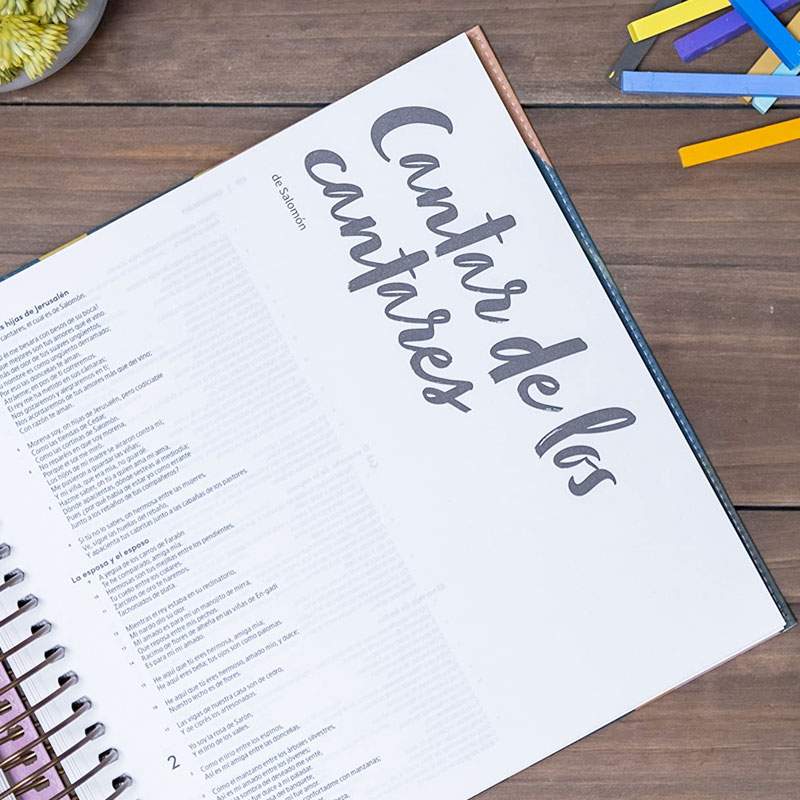 Cantar de los
cantares
de Salomón
hijas de Jerusalén
cantares, el cual es de Salomón.
él me besara con besos de su boca!
mejores son tus amores que el vino.
más del olor de tus suaves ungüentos,
nombre es como ungüento derramado;
Por eso las doncellas te aman.
Atráeme; en pos de ti correremos.
El rey me ha metido en sus cámaras;
Nos gozaremos y alegraremos en ti;
Nos acordaremos de tus amores más que del vino;
Con razón te aman.
Morena soy, oh hijas de Jerusalén, pero codiciable
Como las tiendas de Cedar,
Como las cortinas de Salomón.
No reparéis en que soy morena,
Porque el sol me miró.
Los hijos de mi madre se airaron contra mí;
Me pusieron a guardar las viñas;
Y mi viña, que era mía, no guardé.
Hazme saber, oh tú a quien ama mi alma,
Dónde apacientas, dónde sesteas al mediodía;
Pues ¿por qué había de estar yo como errante
Junto a los rebaños de tus compañeros?
Si tú no lo sabes, oh hermosa entre las mujeres,
Ve, sigue las huellas del rebaño,
Y apacienta tus cabritas junto a las cabañas de los pastores.
La esposa y el esposo
A yegua de los carros de Faraón
Te he comparado, amiga mía.
Hermosas son tus mejillas entre los pendientes,
Tu cuello entre los collares.
Zarcillos de oro te haremos,
Tachonados de plata.
Mientras el rey estaba en su reclinatorio,
Mi nardo dio su olor.
Mi amado es para mí un manojito de mirra,
Que reposa entre mis pechos.
Racimo de flores de alheña en las viñas de En-gadi
Es para mí mi amado.
He aquí que tú eres hermosa, amiga mía;
He aquí eres bella; tus ojos son como palomas.
He aquí que tú eres hermoso, amado mío, y dulce;
Nuestro lecho es de flores.
Las vigas de nuestra casa son de cedro,
Y de ciprés los artesonados.
2 Yo soy la rosa de Sarón,
Y el lirio de los valles.
Como el lirio entre los espinos,
Así es mi amiga entre las doncellas.
Como el manzano entre los árboles silvestres,
Así es mi amado entre los jóvenes;
la sombra del deseado me senté,
fue dulce a mi paladar.
del banquete,
mí fue amor.
confortadme con manzanas;